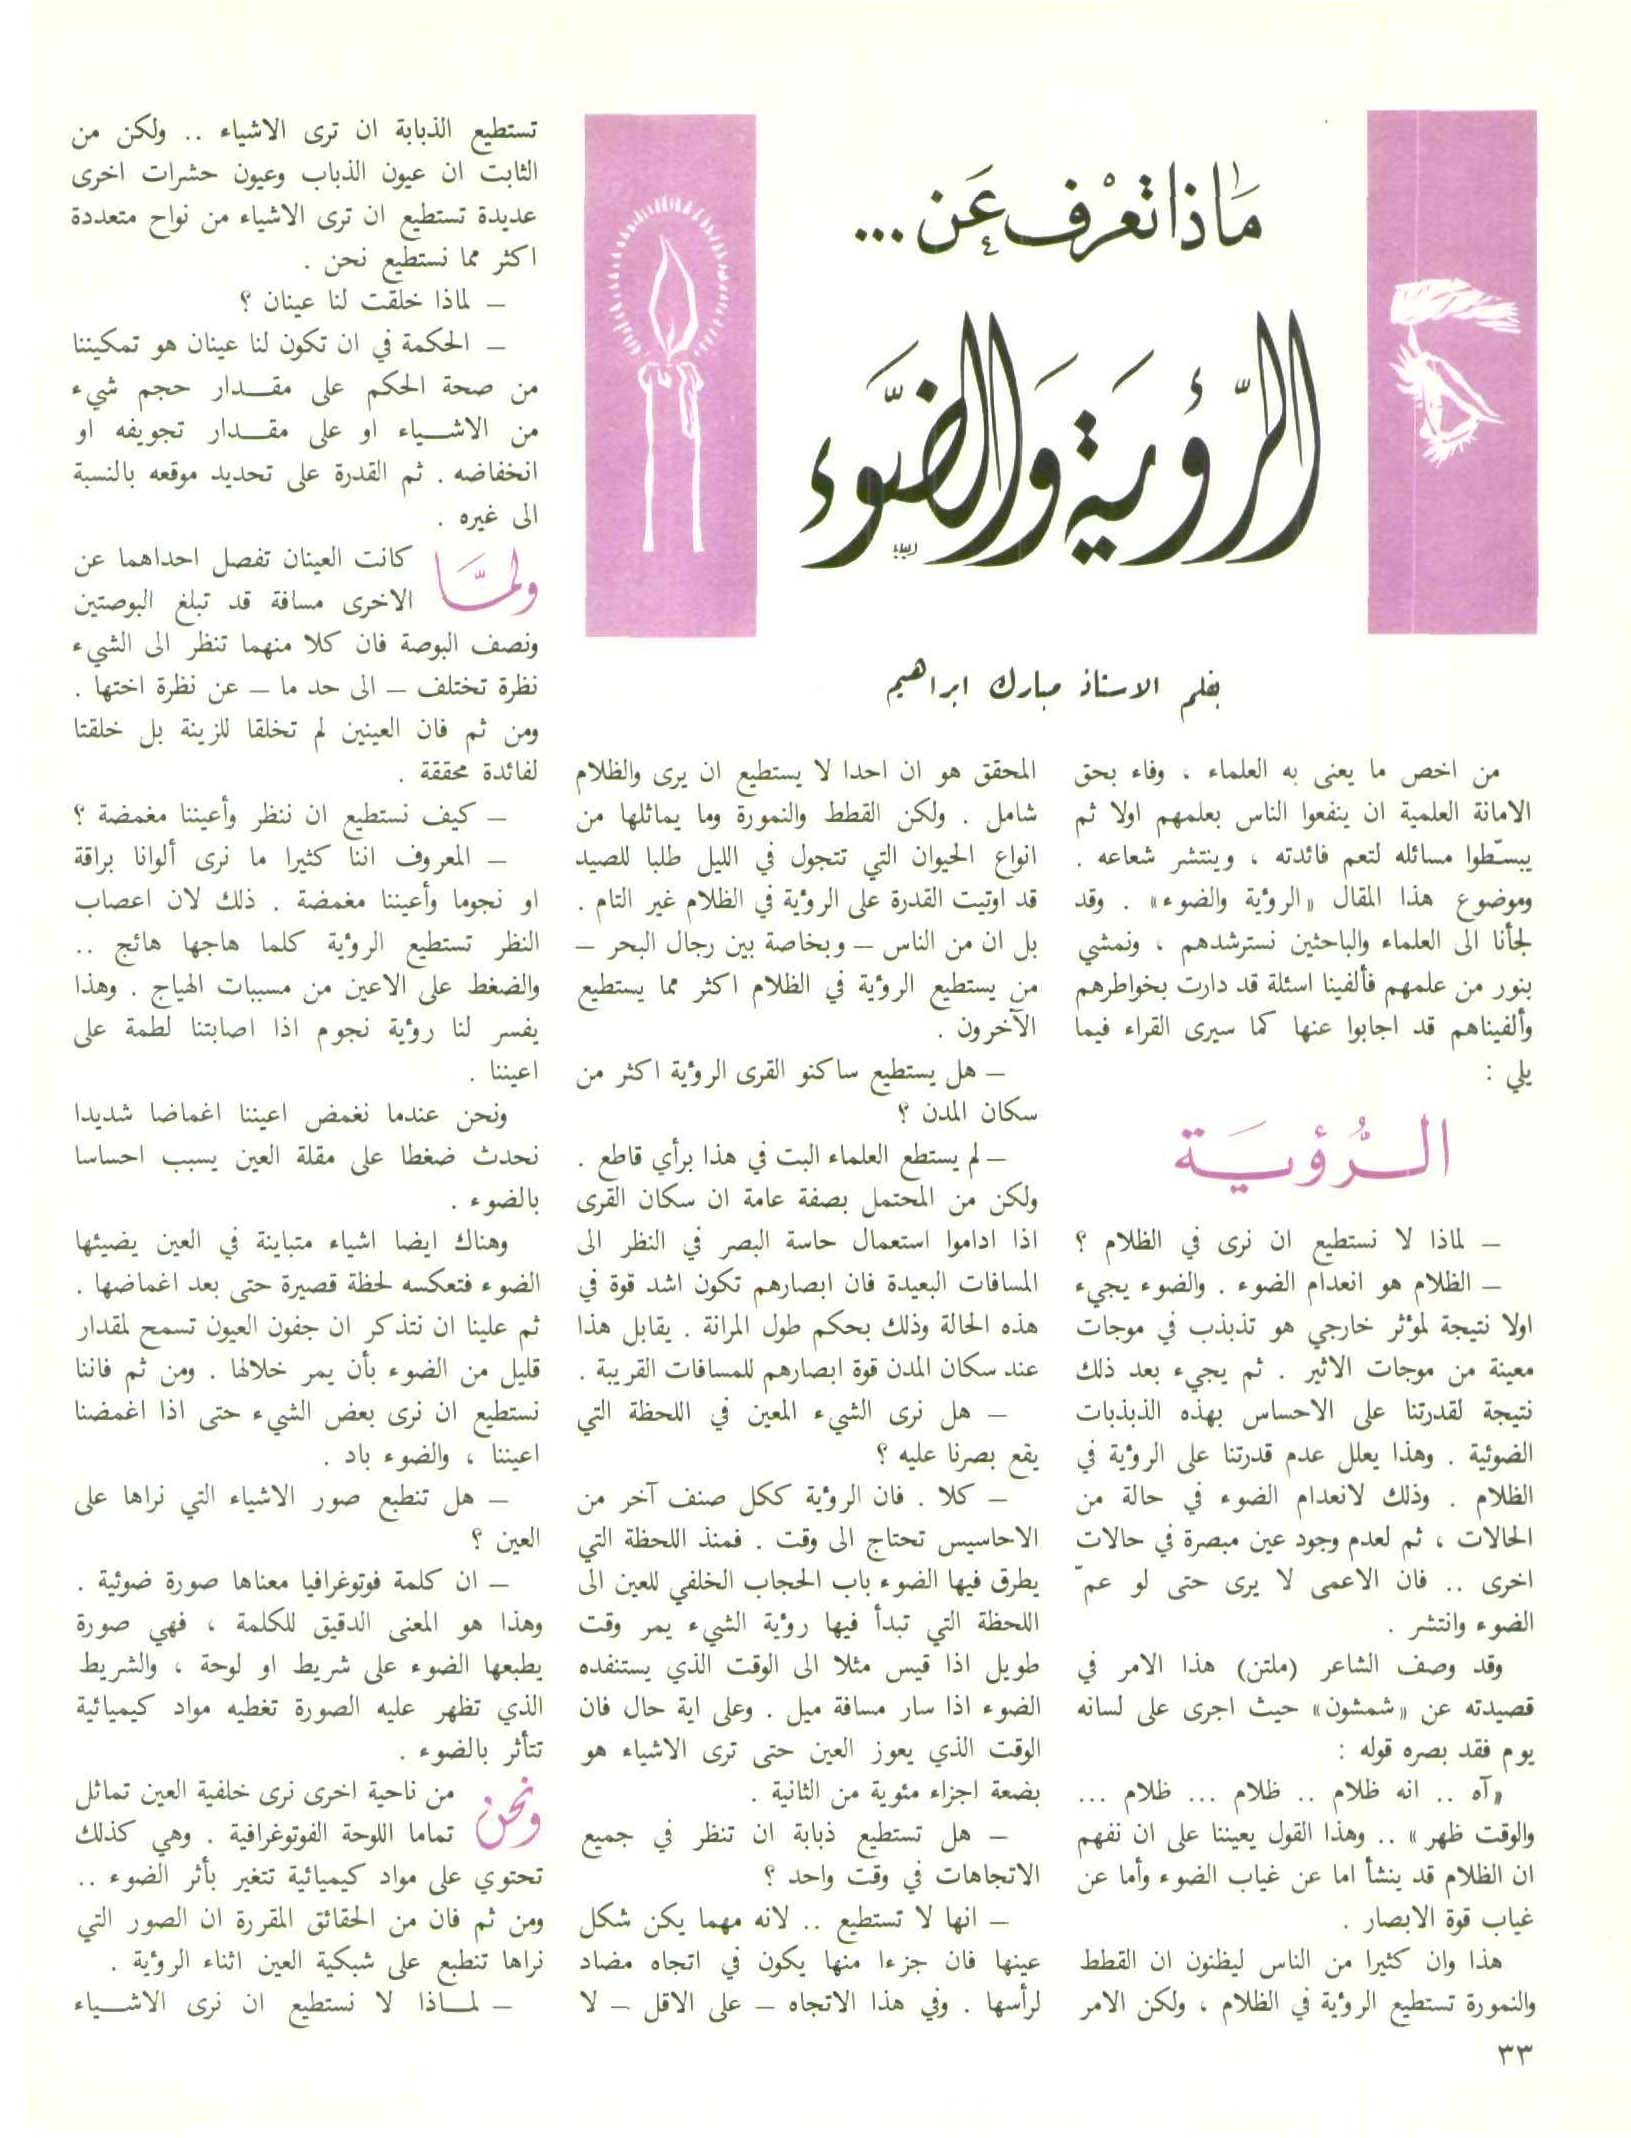 ماذا تعرف عن...
الرؤية والضوء
بقلم الاستاذ مبارك ابراهيم
من اخص ما يعنى به العلماء ، وفاء بحق
الامانة العلمية ان ينفعوا الناس بعلمهم اولا ثم
يبسّطوا مسائله لتعم فائدته ، وينتشر شعاعه .
وموضوع هذا المقال «الرؤية والضوء» . وقد
لجأنا الى العلماء والباحثين نسترشدهم ، ونمشي
بنور من علمهم فألفينا اسئلة قد دارت بخواطرهم
وألفيناهم قد اجابوا عنها كما سيرى القراء فيما
يلي :
الرُّؤيَة
– لماذا لا نستطيع ان نرى في الظلام ؟
– الظلام هو انعدام الضوء . والضوء يجيء
اولا نتيجة لمؤثر خارجي هو تذبذب في موجات
معينة من موجات الاثير . ثم يجيء بعد ذلك
نتيجة لقدرتنا على الاحساس بهذه الذبذبات
الضوئية . وهذا يعلل عدم قدرتنا على الرؤية في
الظلام . وذلك لانعدام الضوء في حالة من
الحالات ، ثم لعدم وجود عين مبصرة في حالات
اخرى .. فان الاعمى لا يرى حتى لو عمّ
الضوء وانتشر .
وقد وصف الشاعر (ملتن) هذا الامر في
قصيدته عن «شمشون» حيث اجرى على لسانه
يوم فقد بصره قوله :
«آه .. انه ظلام .. ظلام ... ظلام ...
والوقت ظهر» .. وهذا القول يعيننا على ان نفهم
ان الظلام قد ينشأ اما عن غياب الضوء وأما عن
غياب قوة الابصار .
هذا وان كثيرا من الناس ليظنون ان القطط
والنمورة تستطيع الرؤية في الظلام ، ولكن الامر
المحقق هو ان احدا لا يستطيع ان يرى والظلام
شامل . ولكن القطط والنمورة وما يماثلها من
انواع الحيوان التي تتجول في الليل طلبا للصيد
قد اوتيت القدرة على الرؤية في الظلام غير التام .
بل ان من الناس – وبخاصة بين رجال البحر –
من يستطيع الرؤية في الظلام اكثر مما يستطيع
الآخرون .
– هل يستطيع ساكنو القرى الرؤية اكثر من
سكان المدن ؟
– لم يستطع العلماء البت في هذا برأي قاطع .
ولكن من المحتمل بصفة عامة ان سكان القرى
اذا اداموا استعمال حاسة البصر في النظر الى
المسافات البعيدة فان ابصارهم تكون اشد قوة في
هذه الحالة وذلك بحكم طول المرانة . يقابل هذا
عند سكان المدن قوة ابصارهم للمسافات القريبة .
– هل نرى الشيء المعين في اللحظة التي
يقع بصرنا عليه ؟
– كلا . فان الرؤية ككل صنف آخر من
الاحاسيس تحتاج الى وقت . فمنذ اللحظة التي
يطرق فيها الضوء باب الحجاب الخلفي للعين الى
اللحظة التي تبدأ فيها رؤية الشيء يمر وقت
طويل اذا قيس مثلا الى الوقت الذي يستنفده
الضوء اذا سار مسافة ميل . وعلى اية حال فان
الوقت الذي يعوز العين حتى ترى الاشياء هو
بضعة اجزاء مئوية من الثانية .
– هل تستطيع ذبابة ان تنظر في جميع
الاتجاهات في وقت واحد ؟
– انها لا تستطيع .. لانه مهما يكن شكل
عينها فان جزءا منها يكون في اتجاه مضاد
لرأسها . وفي هذا الاتجاه – على الاقل – لا
تستطيع الذبابة ان ترى الاشياء .. ولكن من
الثابت ان عيون الذباب وعيون حشرات اخرى
عديدة تستطيع ان ترى الاشياء من نواح متعددة
اكثر مما نستطيع نحن .
– لماذا خلقت لنا عينان ؟
– الحكمة في ان تكون لنا عينان هو تمكيننا
من صحة الحكم على مقدار حجم شيء
من الاشياء او على مقدار تجويفه او
انخفاضه . ثم القدرة على تحديد موقعه بالنسبة
الى غيره .
ولمّا كانت العينان تفصل احداهما عن
الاخرى مسافة قد تبلغ البوصتين
ونصف البوصة فان كلا منهما تنظر الى الشيء
نظرة تختلف – الى حد ما – عن نظرة اختها .
ومن ثم فان العينين لم تخلقا للزينة بل خلقتا
لفائدة محققة .
– كيف نستطيع ان ننظر وأعيننا مغمضة ؟
– المعروف اننا كثيرا ما نرى ألوانا براقة
او نجوما وأعيننا مغمضة . ذلك لان اعصاب
النظر تستطيع الرؤية كلما هاجها هائج ..
والضغط على الاعين من مسببات الهياج . وهذا
يفسر لنا رؤية نجوم اذا اصابتنا لطمة على
اعيننا .
ونحن عندما نغمض اعيننا اغماضا شديدا
نحدث ضغطا على مقلة العين يسبب احساسا
بالضوء .
وهناك ايضا اشياء متباينة في العين يضيئها
الضوء فتعكسه لحظة قصيرة حتى بعد اغماضها .
ثم علينا ان نتذكر ان جفون العيون تسمح لمقدار
قليل من الضوء بأن يمر خلالها . ومن ثم فاننا
نستطيع ان نرى بعض الشيء حتى اذا اغمضنا
اعيننا ، والضوء باد .
– هل تنطبع صور الاشياء التي نراها على
العين ؟
– ان كلمة فوتوغرافيا معناها صورة ضوئية .
وهذا هو المعنى الدقيق للكلمة ، فهي صورة
يطبعها الضوء على شريط او لوحة ، والشريط
الذي تظهر عليه الصورة تغطيه مواد كيميائية
تتأثر بالضوء .
ونحن من ناحية اخرى نرى خلفية العين تماثل
تماما اللوحة الفوتوغرافية . وهي كذلك
تحتوي على مواد كيميائية تتغير بأثر الضوء ..
ومن ثم فان من الحقائق المقررة ان الصور التي
نراها تنطبع على شبكية العين اثناء الرؤية .
– لماذا لا نستطيع ان نرى الاشياء
٣٣